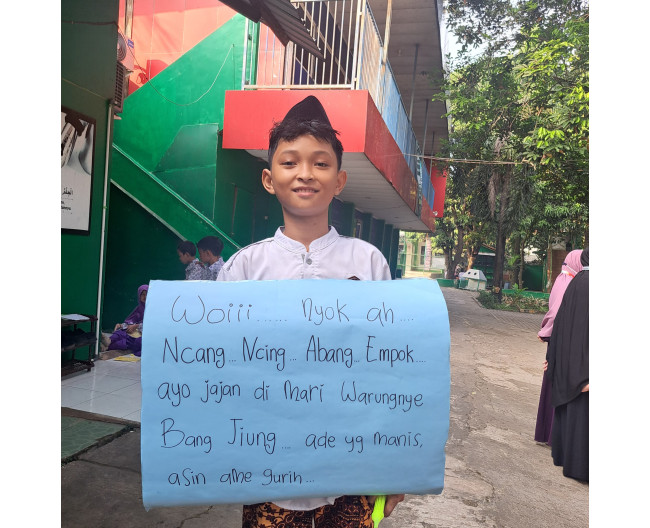 Woiii...... nyok ah....
Ncang... Ncing... Abang... Empok....
ayo jajan di mari Warungnye
Bang Jiung... ade yg manis,
asin ame gurih...